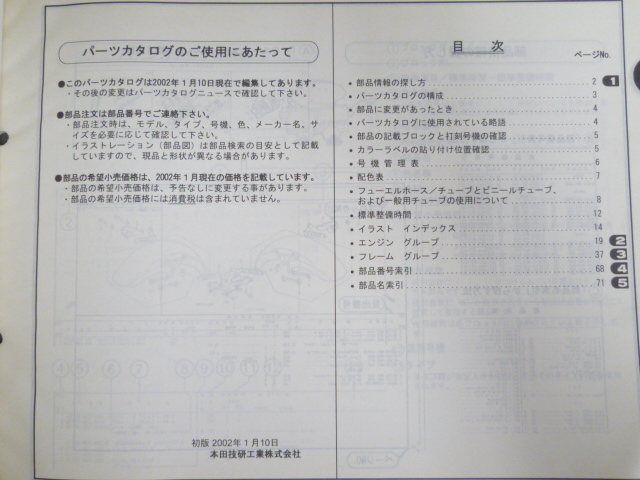 パーツカタログのご使用にあたって
●このパーツカタログは2002年1月10日現在で編集してあります。
・その後の変更はパーツカタログニュースで確認して下さい。
●部品注文は部品番号でご連絡下さい。
・部品注文時は、モデル、タイプ、号機、色、メーカー名、サ
イズを必要に応じて確認して下さい。
・イラストレーション（部品図）は部品検索の目安として記載
していますので、現品と形状が異なる場合があります。
●部品の希望小売価格は、2002年1月現在の価格を記載しています。
・部品の希望小売価格は、予告なしに変更する事があります。
・部品の希望小売価格には消費税は含まれていません。
初版 2002年1月10日
本田技研工業株式会社
目 次
ページNo.
・部品情報の探し方 2 1
・パーツカタログの構成 3
・部品に変更があったとき 4
・パーツカタログに使用されている略語 4
・部品の記載ブロックと打刻号機の確認 5
・カラーラベルの貼り付け位置確認 5
・号 機 管 理 表 6
・配色表 7
・フューエルホース／チューブとビニールチューブ、
および一般用チューブの使用について 8
・標準整備時間 12
・イラスト インデックス 14
・エンジン グループ 19 2
・フレーム グループ 37 3
・部品番号索引 68 4
・部品名索引 71 5